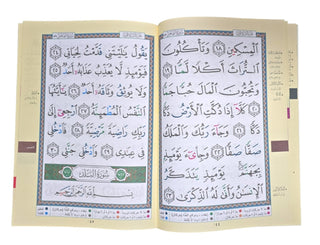 ٱلْمِسْكِينِ ١٨ وَتَأْكُلُونَ
ٱلتُّرَاثَ أَكْلًا لَّمًّا ١٩
وَتُحِبُّونَ ٱلْمَالَ حُبًّا جَمًّا
٢٠ كَلَّآ إِذَا دُكَّتِ ٱلْأَرْضُ دَكًّا
دَكًّا ٢١ وَجَآءَ رَبُّكَ وَٱلْمَلَكُ
صَفًّا صَفًّا ٢٢ وَجِا۟ىٓءَ يَوْمَئِذٍۭ
بِجَهَنَّمَ يَوْمَئِذٍ يَتَذَكَّرُ
ٱلْإِنسَٰنُ وَأَنَّىٰ لَهُ ٱلذِّكْرَىٰ ٢٣
يَقُولُ يَٰلَيْتَنِى قَدَّمْتُ لِحَيَاتِى ٢٤
فَيَوْمَئِذٍ لَّا يُعَذِّبُ عَذَابَهُۥٓ أَحَدٌ ٢٥
وَلَا يُوثِقُ وَثَاقَهُۥٓ أَحَدٌ ٢٦ يَٰٓأَيَّتُهَا
ٱلنَّفْسُ ٱلْمُطْمَئِنَّةُ ٢٧ ٱرْجِعِىٓ إِلَىٰ
رَبِّكِ رَاضِيَةً مَّرْضِيَّةً ٢٨ فَٱدْخُلِى
فِى عِبَٰدِى ٢٩ وَٱدْخُلِى جَنَّتِى ٣٠
سُورَةُ البَلَدِ
بِسْمِ ٱللَّهِ ٱلرَّحْمَٰنِ ٱلرَّحِيمِ